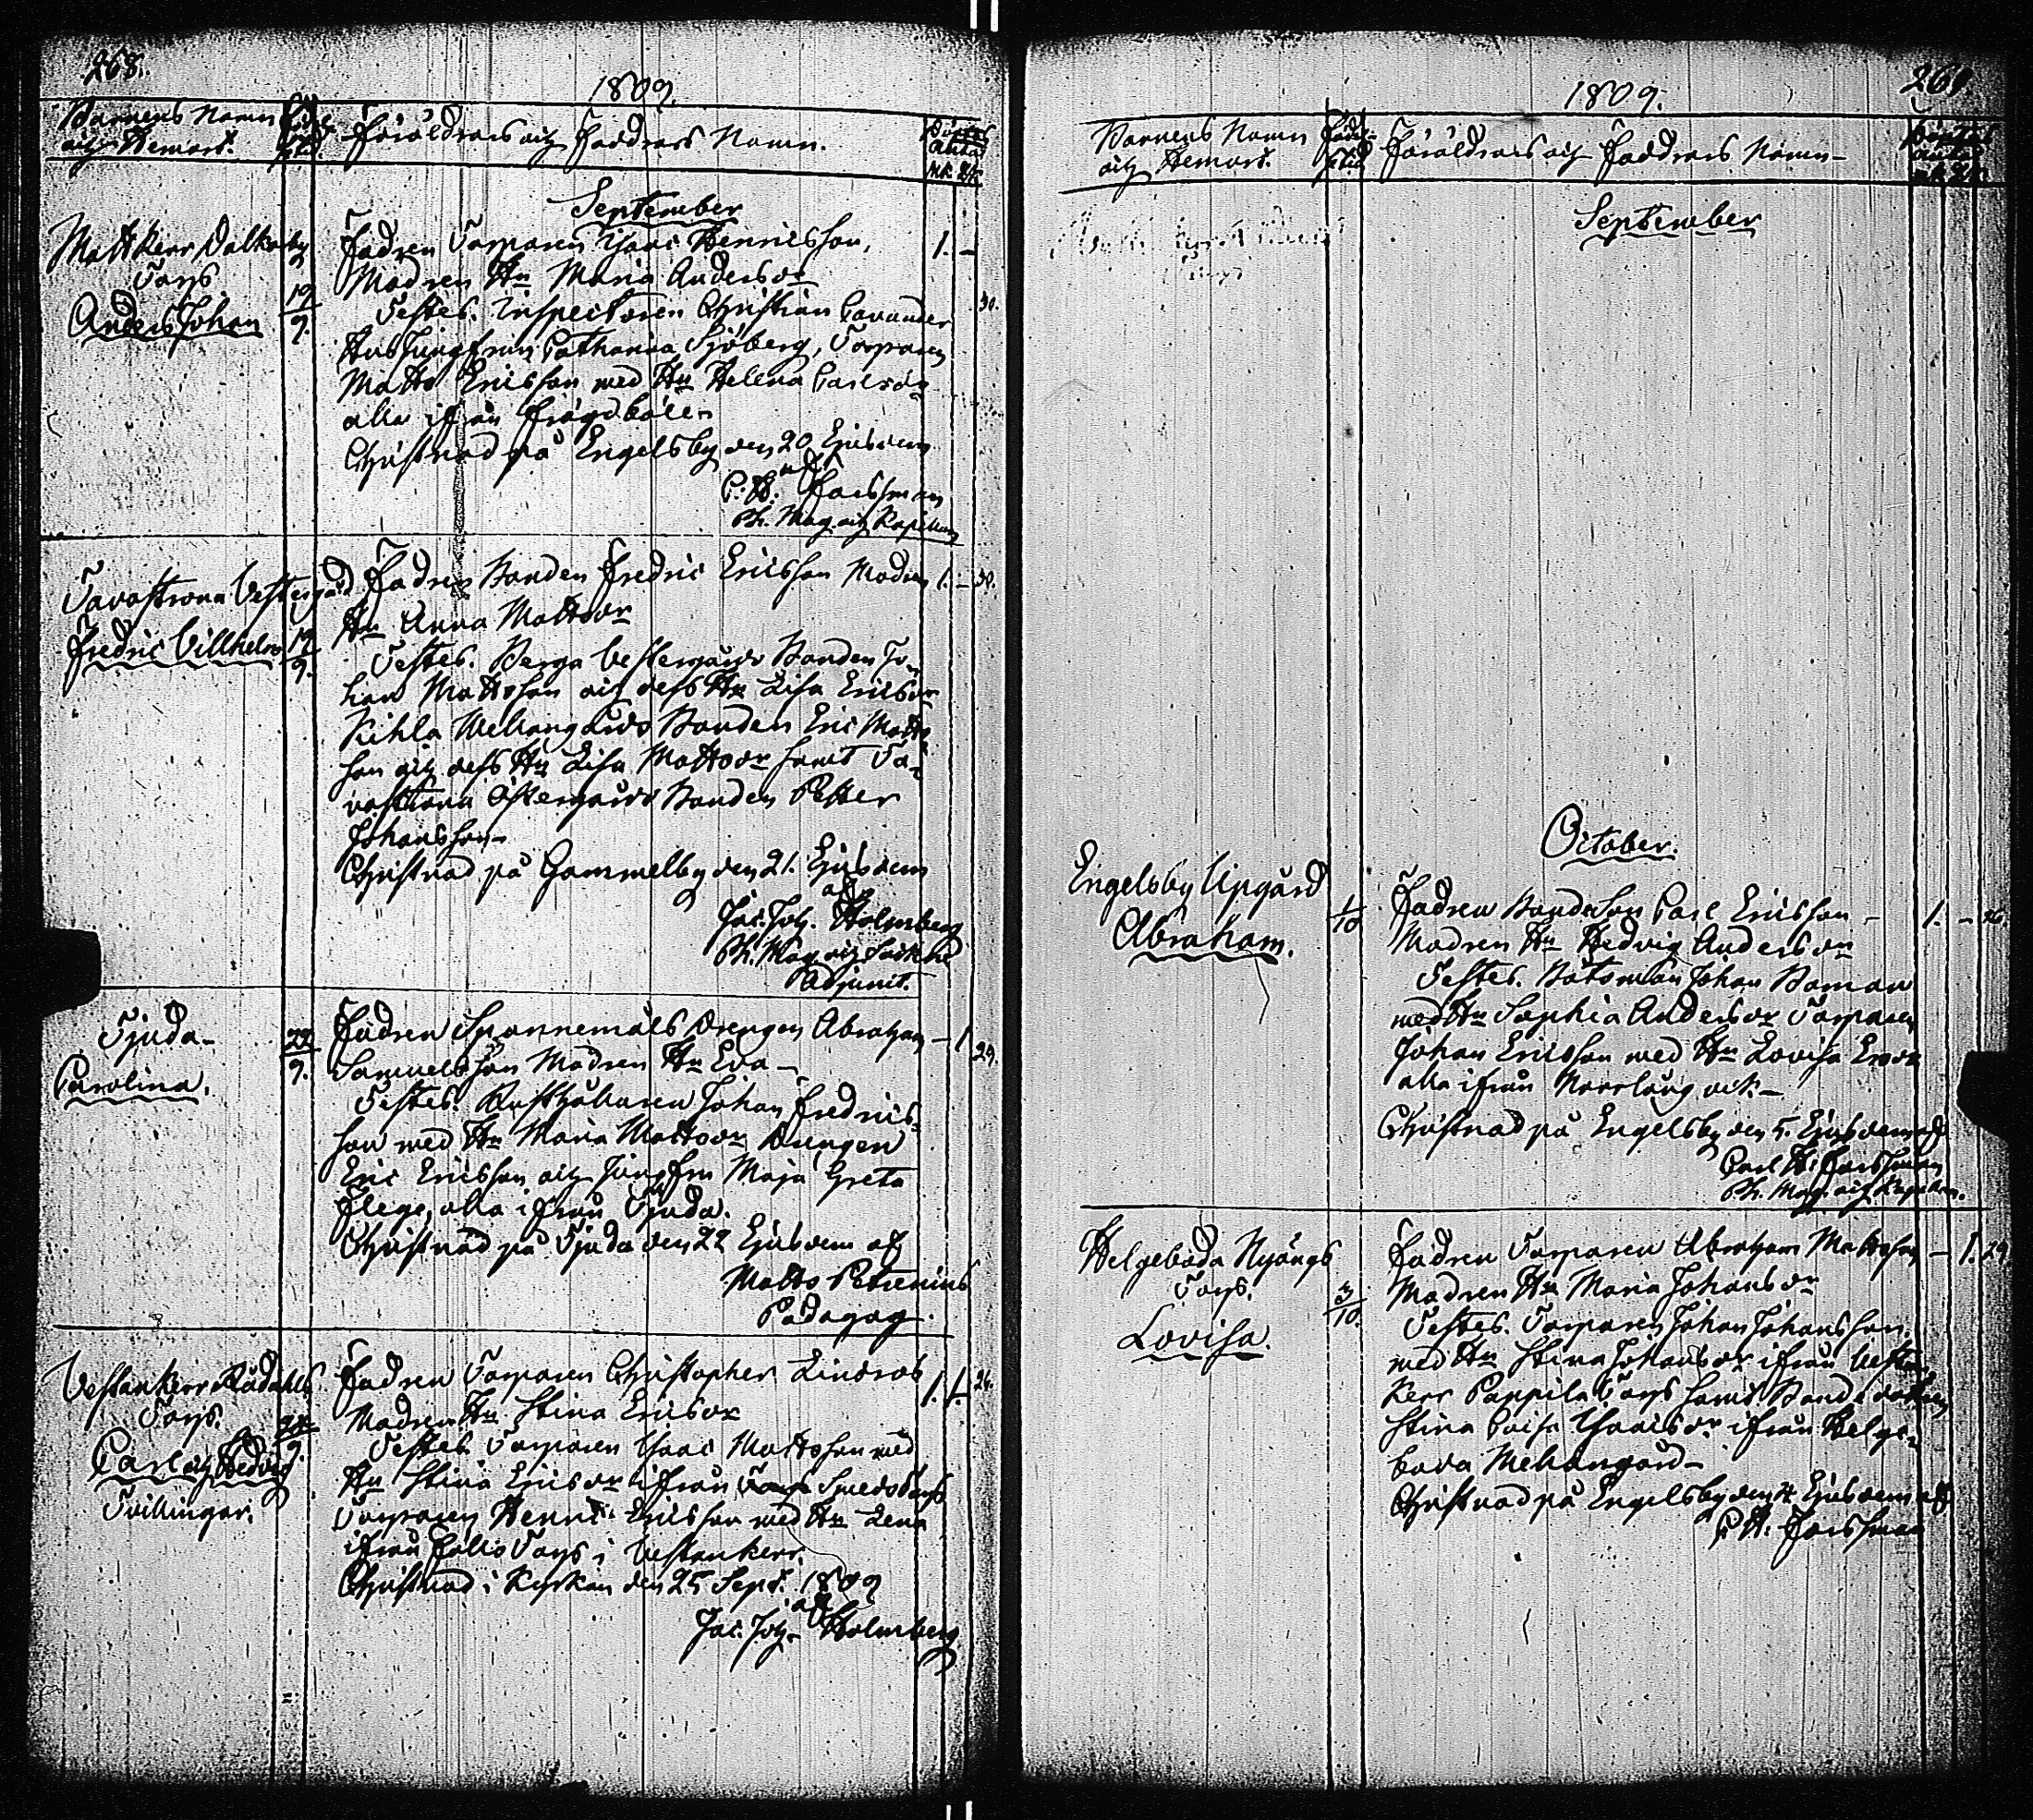 268.
1809.
Barnens Namn
och Hemort.
Föräldrars och Faddrars Namn.
September
Mattkerr Dalkarby
Torp
Anders Johan
19
9.
Fadren Torparen Isaac Henricsson,
Modren Hu Maria Andersdr
Testes. Inspectoren Christian Cavander
Hus Jungfrun Catharina Sjöberg, Torparen
Matts Ericsson med Hu Helena Carlsdr
alla ifrån Frägdböle
Christnad på Engelsby den 20 Ejusdem
af
C. H. Forssman
Ph. Mag. och Kapellan
1. –
30.
Tavastrona Vestergård
Fredric Villhelm
19
9.
Fadren Bonden Fredric Ericsson Modren
Hu Anna Mattsdr
Testes. Berga Vestergårds Bonden Jo-
han Mattsson och dess Hu Lisa Ericsdr
Kihla Mellangårds Bonden Eric Matts
son och dess Hu Lisa Mattsdr samt Ta-
vastrona Östergårds Bonden Petter
Johansson
Christnad på Gammelby den 21. Ejusdem
af
Jac. Joh. Holmberg
Ph. Mag. och Sockne
Adjunct.
1. – 30.
Tjuda
Carolina.
22
9.
Fadren Spannemåls Drengen Abraham
Samuelsson Modren Hu Eva
Testes. Rusthållaren Johan Fredrics-
son med Hu Maria Mattsdr Drengen
Eric Ericsson och Jungfru Maja Greta
Flege, alla ifrån Tjuda.
Christnad på Tjuda den 22 Ejusdem af
Matts Petrenius
Pædagog
– 1.
29.
Vestankerr Rådahls
Torp.
Carl och Hedvig
Tvillingar.
9.
Fadren Torparen Christopher Lindroos
Modren Hu Stina Ericsdr
Testes. Torparen Isaac Mattsson med
Hu Stina Ericsdr ifrån Smeds Torp
Torparen Henric Ericsson med Hu Lena
ifrån Torp i Vestankerr.
Christnad i Kyrkan den 25 Sept. 1809
af
Jac. Joh. Holmberg
1. 1. 26.
1809.
269
Barnens Namn
och Hemort.
Föräldrars och Faddrars Namn
September
October.
Engelsby Upgård
Abraham.
1
10
Fadren Bondeson Carl Ericsson
Modren Hu Hedvig Andersdr
Testes. Båtsman Johan Boman
med Hu Sophia Andersdr Torparen
Johan Ericsson med Hu Lovisa Ersdr
alla ifrån Norrlångvik
Christnad på Engelsby den 5. Ejusdem af
Carl H. Forssman
Ph. Mag. och Kapellan.
1. – 26.
Helgeboda Nyängs
Torp.
Lovisa.
3
10.
Fadren Torparen Abraham Mattsson
Modren Hu Maria Johansdr
Testes. Torparen Johan Johansson
med Hu Stina Johansdr ifrån Vestan
kerr Pappila Torp samt Bondedottren
Stina Cajsa Isaacsdr ifrån Helge-
boda Mellangård
Christnad på Engelsby den 4 Ejusdem af
C. H. Forssman
– 1. 29